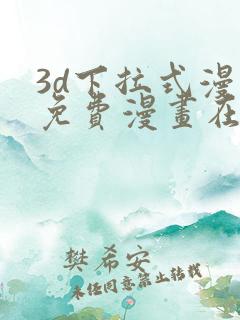 3d下拉式漫
免費漫畫在
樊希安
未经同意禁止转载